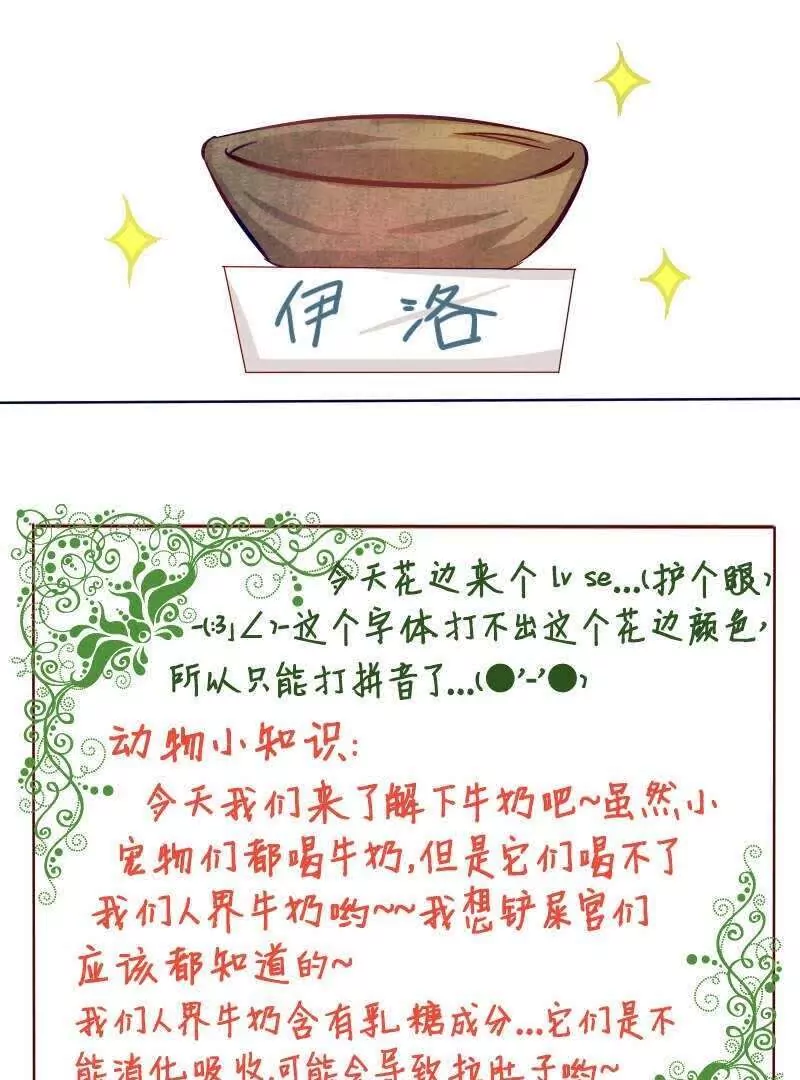 伊洛
今天花边来个lv se...(护个眼)
-(:3」∠)-这个字体打不出这个花边颜色,
所以只能打拼音了...(●'-'●)
动物小知识:
今天我们来了解下牛奶吧~虽然小
宠物们都喝牛奶,但是它们喝不了
我们人界牛奶哟~~我想铲屎官们
应该都知道的~
我们人界牛奶含有乳糖成分...它们是不
能消化吸收,可能会导致拉肚子哟~